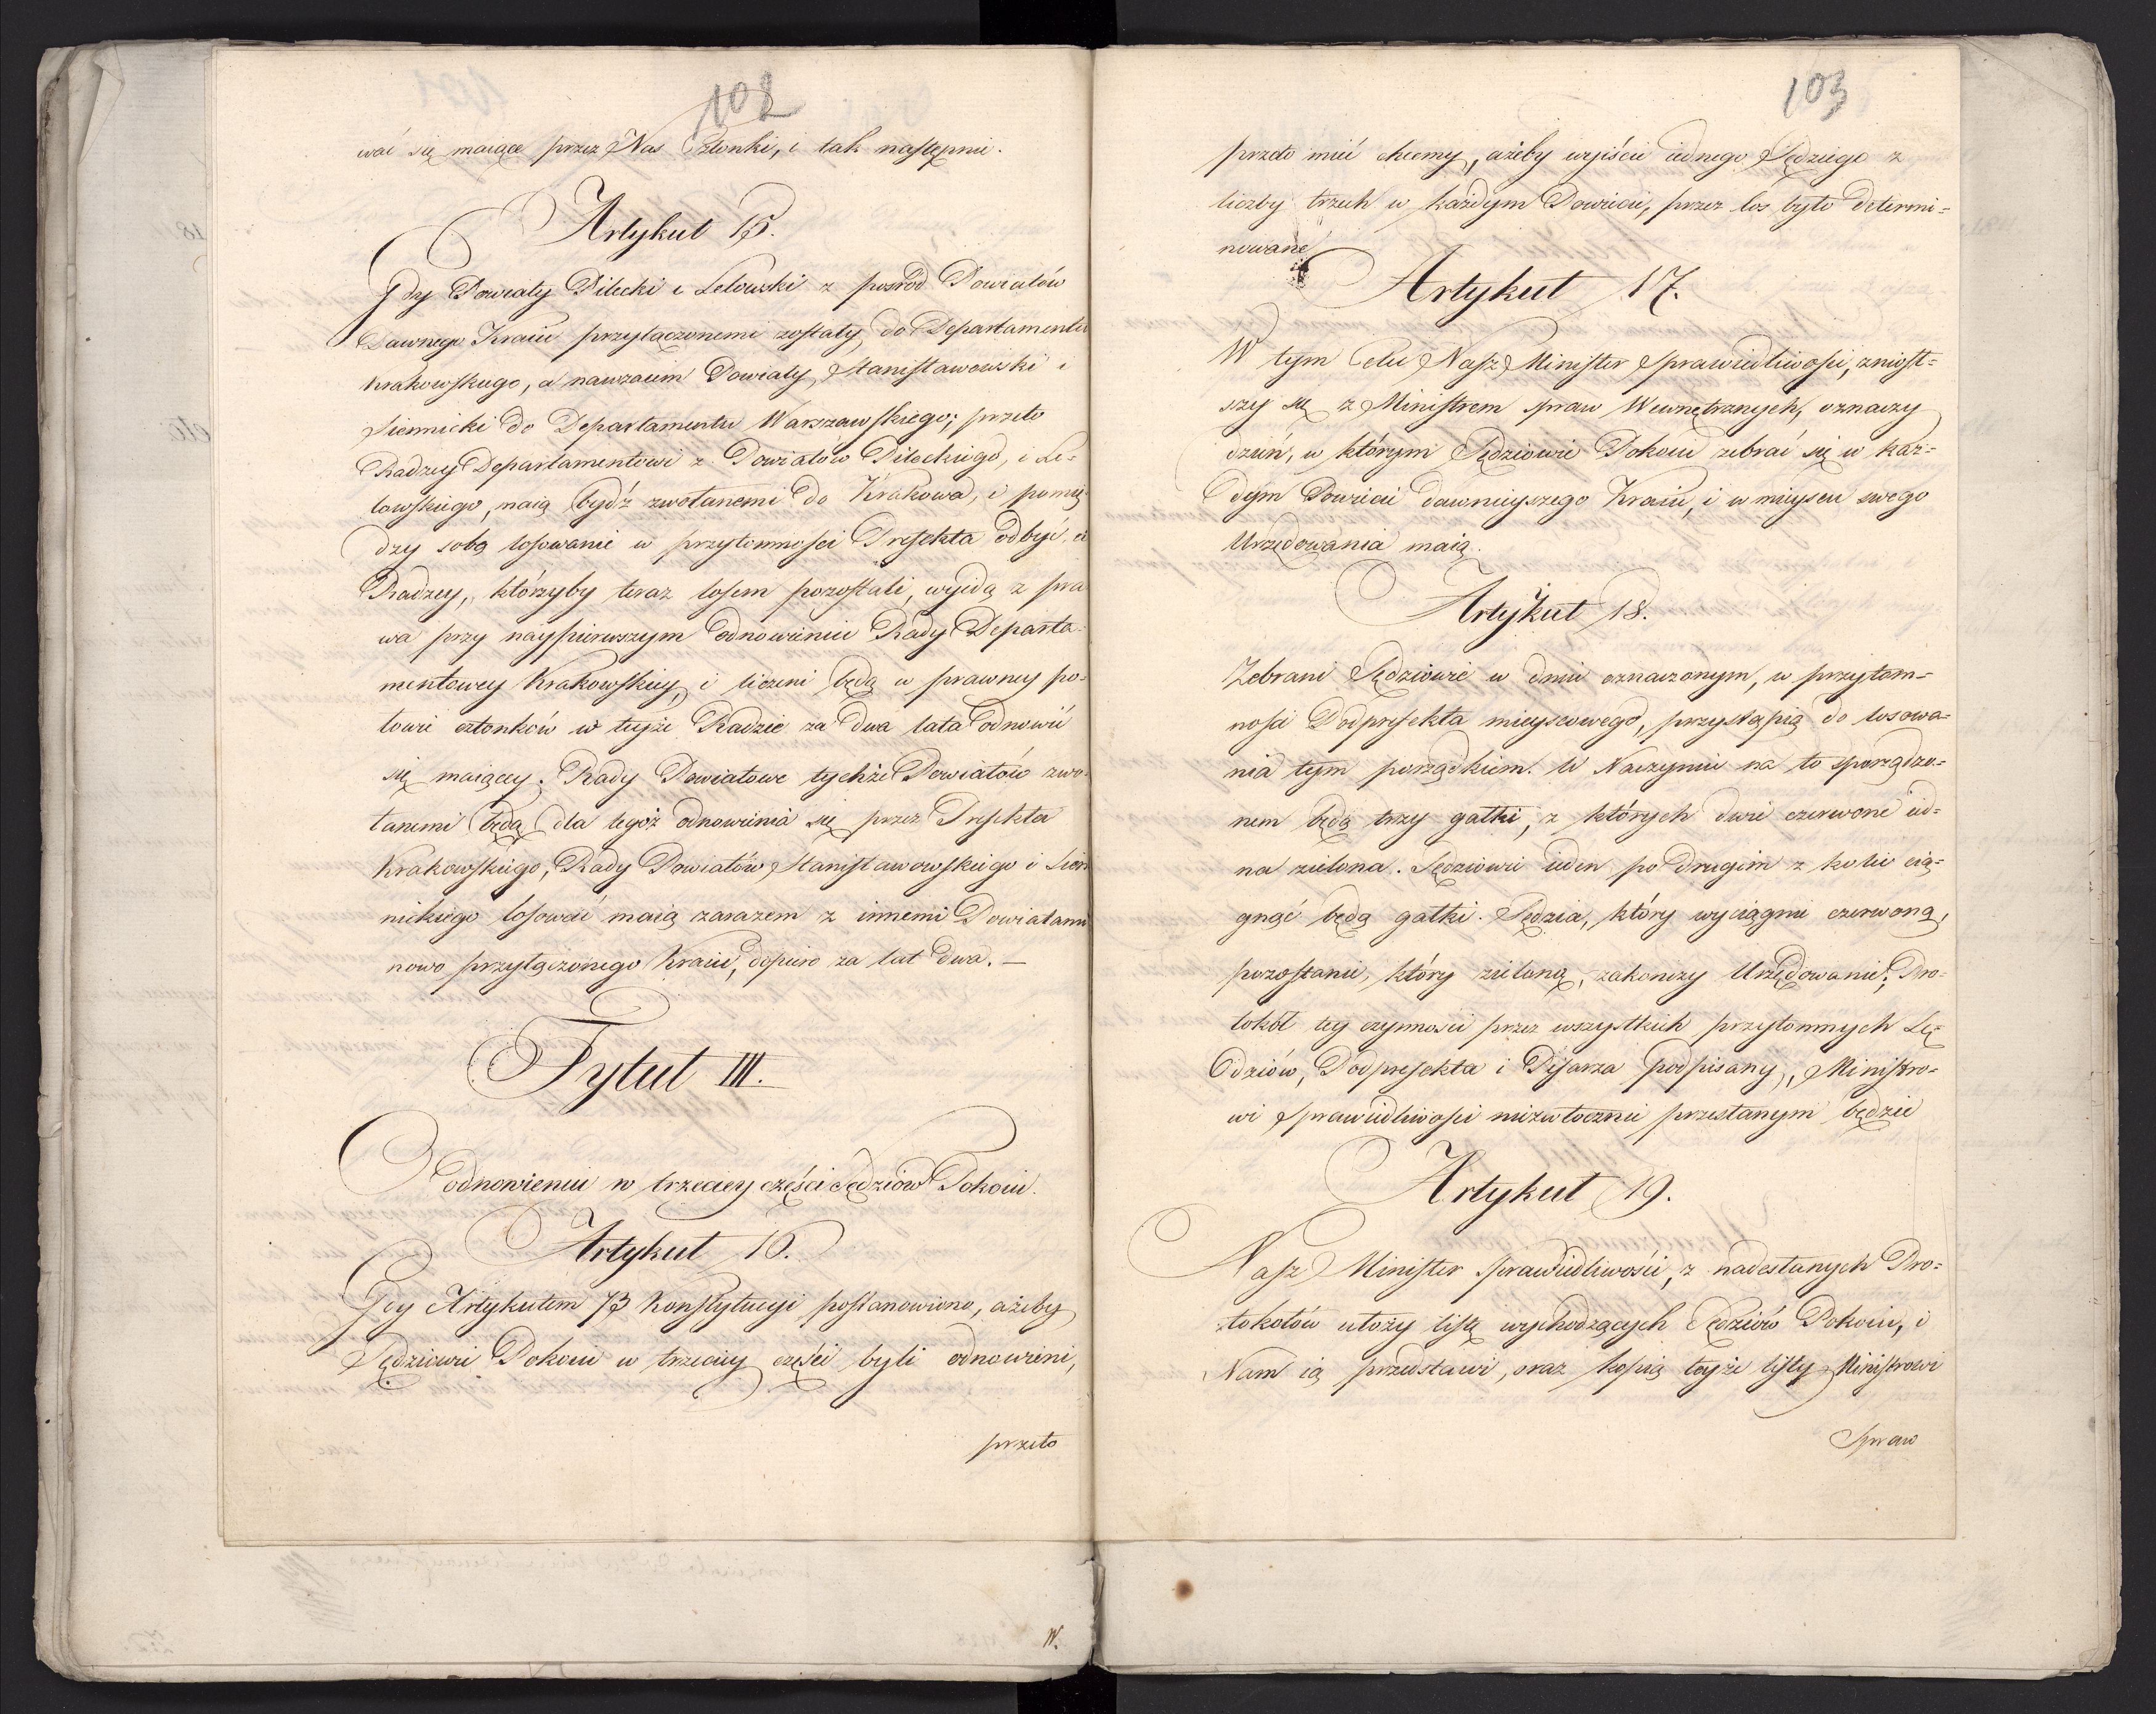 102
wać się maiące przez Nas Członki, i tak następnie.
Artykuł 15.
Gdy Powiaty Pilecki i Lelowski z pośród Powiatów
dawnego Kraiu przyłączonemi zostały do Departamentu
Krakowskiego, a nawzaiem Powiaty Stanisławowski i
Siennicki do Departamentu Warszawskiego; przeto
Radzcy Departamentowi z Powiatów Pileckiego, i Le=
lowskiego, maią bydź zwołanemi do Krakowa, i pomię=
dzy sobą losowanie w przytomności Prefekta odbyć, ci
Radzcy, którzyby teraz losem pozostali, wyidą z pra
wa przy naypierwszym odnowieniu Rady Departa=
mentowey Krakowskiey, i liczeni będą w prawney po=
łowie członków w teyże Radzie za dwa lata odnowić
się maiącey. Rady Powiatowe tychże Powiatów zwo=
łanemi będą dla tegoż odnowienia się przez Prefekta
Krakowskiego, Rady Powiatów Stanisławowskiego i Sien
nickiego losować maią zarazem z innemi Powiatami
nowo przyłączonego Kraiu, dopiero za lat dwa. —
Tytuł III.
O odnowieniu w trzeciey części Sędziów Pokoiu.
Artykuł 16.
Gdy Artykułem 73 Konstytucyi postanowiono, ażeby
Sędziowie Pokoiu w trzeciey części byli odnowieni,
przeto
W.
103
przeto mieć chcemy, ażeby wyiście iednego Sędziego z
liczby trzech w każdym Powiecie, przez los było determi=
nowane
Artykuł 17.
W tym Celu Nasz Minister Sprawiedliwości, zniosł=
szy się z Ministrem spraw Wewnętrznych, oznaczy
dzień, w którym Sędziowie Pokoiu zebrać się w Każ=
dym Powiecie dawnieyszego Kraiu, i w mieyscu swego
Urzędowania maią.
Artykuł 18.
Zebrani Sędziowie w dniu oznaczonym, w przytom=
ności Podprefekta mieyscowego, przystąpią do losowa=
nia tym porządkiem. W Naczyniu na to sporządzo=
nem będą trzy gałki, z których dwie czerwone ied=
na zielona. Sędziowie ieden po drugim z kolei cią=
gnąć będą gałki. Sędzia, który wyciągnie czerwoną,
pozostanie, który zieloną, zakończy Urzędowanie; Pro=
tokół tey czynności przez wszystkich przytomnych Sę=
dziów, Podprefekta i Pisarza podpisany, Ministro=
wi Sprawiedliwości niezwłocznie przesłanym będzie
Artykuł 19.
Nasz Minister Sprawiedliwości, z nadesłanych Pro=
tokołów ułoży listę wychodzących Sędziów Pokoiu, i
Nam ią przedstawi, oraz kopią teyże listy Ministrowi
Spraw